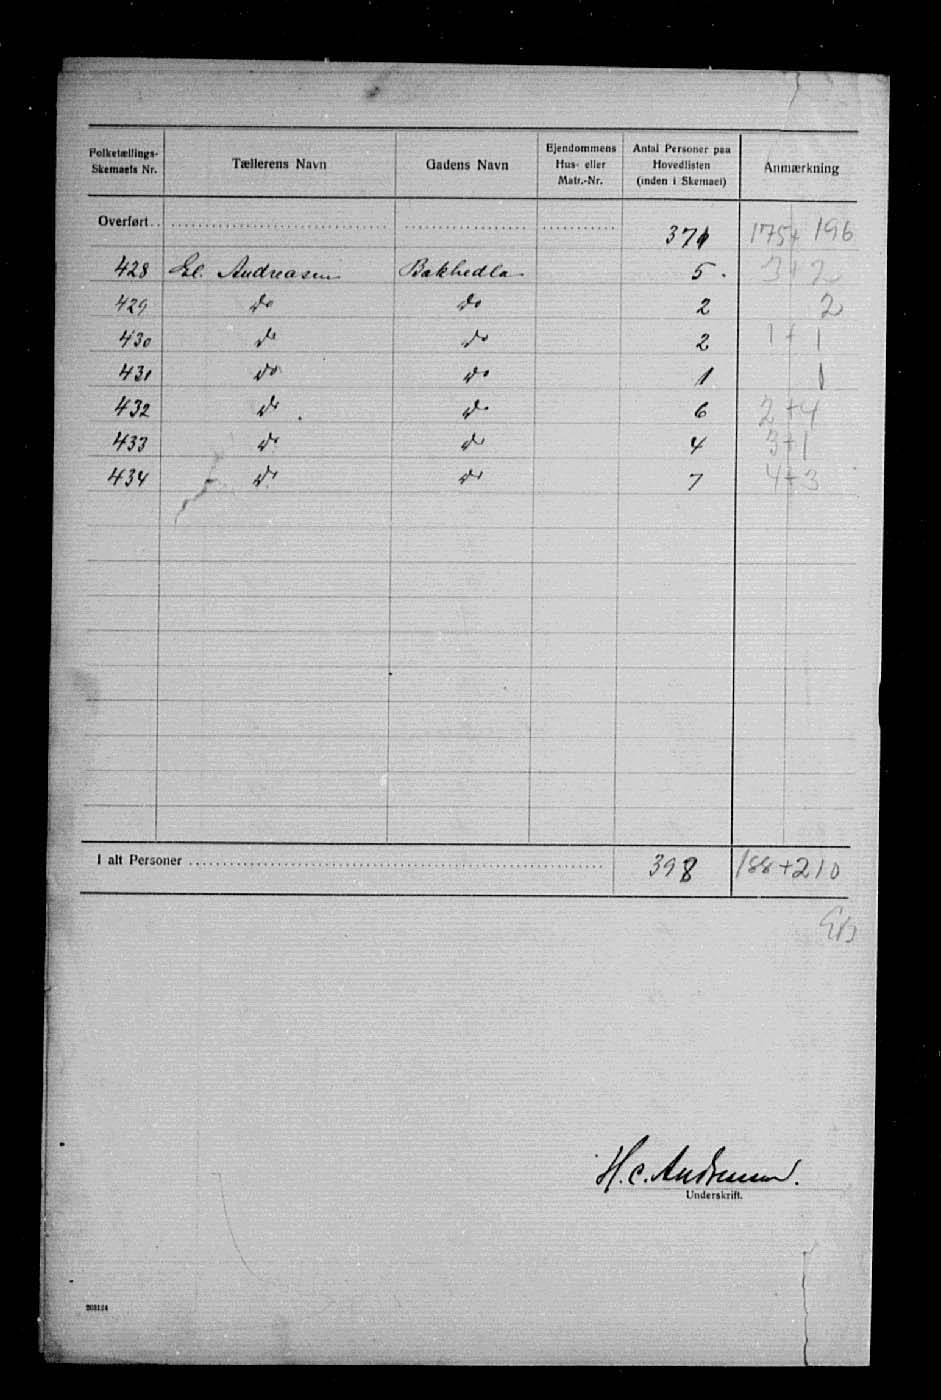 Folketællings-Skemaets Nr. Tællerens Navn Gadens Navn Ejendommens Hus- eller Matr.-Nr. Antal Personer paa Hovedlisten (inden i Skemaet) Anmærkning
Overført 371 175+ 196
428 El. Andreasen Bakhedla 5 3+2
429 do do 2 2
430 do do 2 1+1
431 do do 1 1
432 do do 6 2+4
433 do do 4 3+1
434 do do 7 4+3
I alt Personer 398 188+210
H. C. Andreasen.
Underskrift.